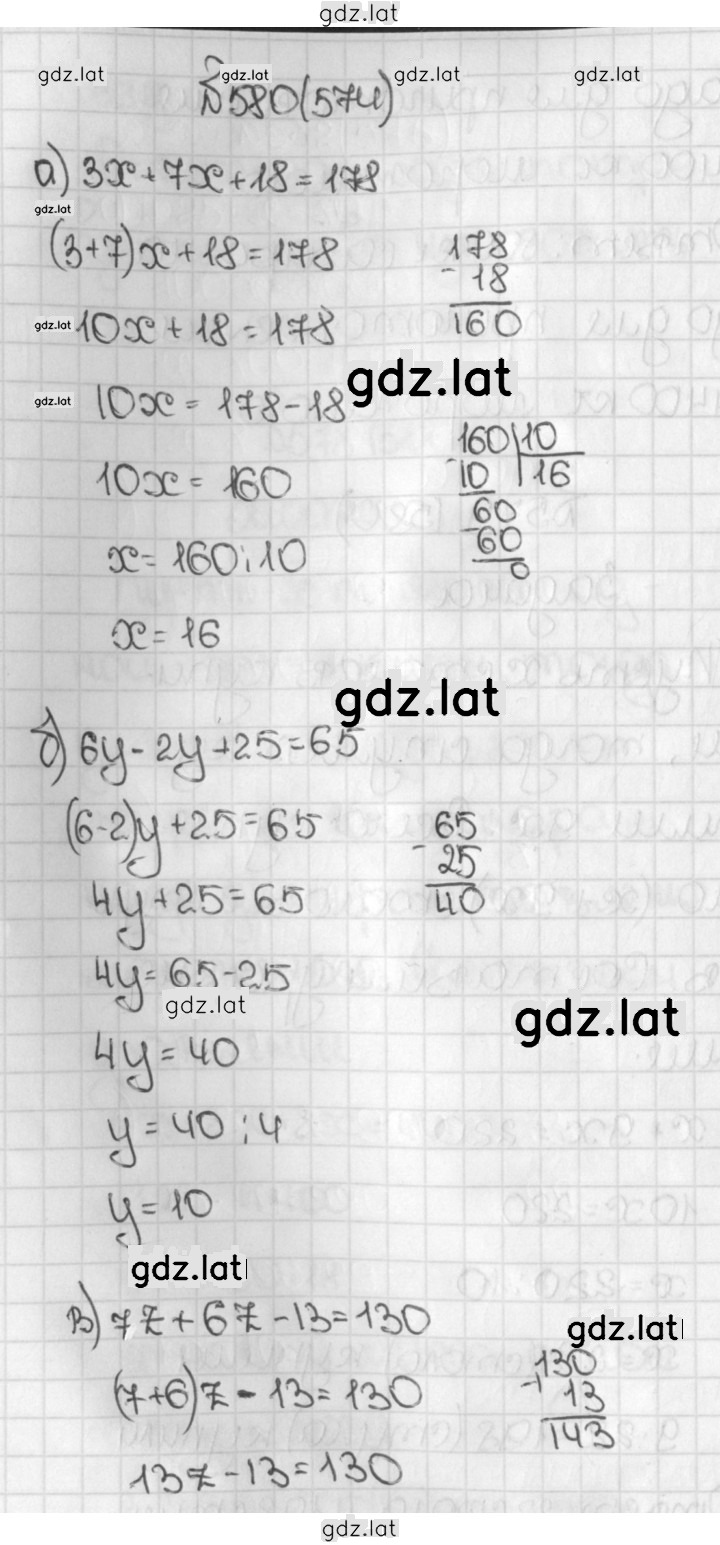 gdz.lat
gdz.lat gdz.lat gdz.lat gdz.lat
№580(574)
а) 3x+7x+18=178
gdz.lat
(3+7)x+18=178
178
- 18
160
gdz.lat 10x+18=178
gdz.lat 10x=178-18
gdz.lat
160|10
-10 16
60
-60
0
10x=160
x=160:10
x=16
gdz.lat
б) 6y-2y+25=65
(6-2)y+25=65
65
- 25
40
4y+25=65
4y=65-25
gdz.lat
gdz.lat
4y=40
y=40:4
y=10
gdz.lat
в) 7z+6z-13=130
gdz.lat
(7+6)z-13=130
130
+ 13
143
13z-13=130
gdz.lat